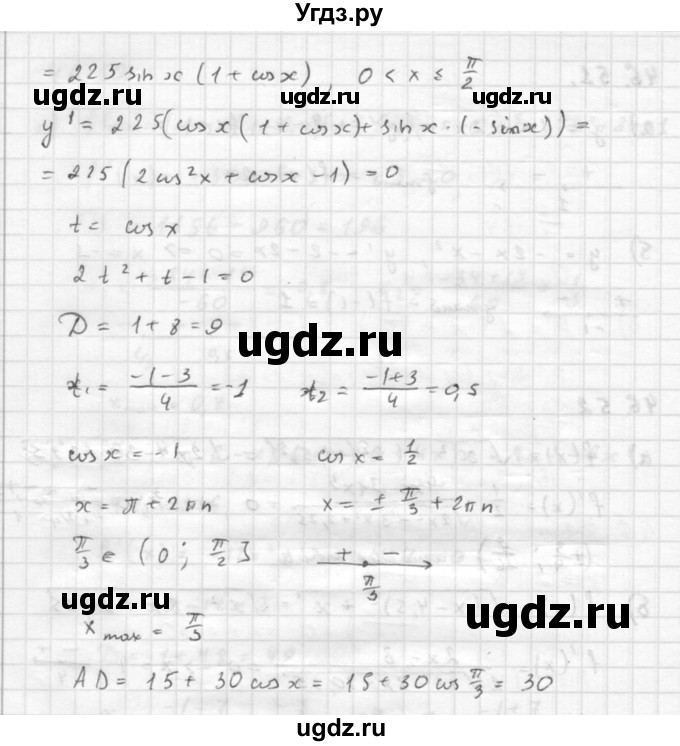 Угдз.ру
= 225 sin x (1 + cos x), 0 < x ≤ π/2
ugdz.ru ugdz.ru ugdz.ru
y' = 225(cos x(1 + cos x) + sin x · (- sin x)) =
= 225 (2 cos²x + cos x - 1) = 0
t = cos x
2t² + t - 1 = 0
D = 1 + 8 = 9
ugdz.ru
t₁ = (-1-3)/4 = -1 t₂ = (-1+3)/4 = 0,5
cos x = -1 cos x = 1/2
x = π + 2πn x = ± π/3 + 2πn
π/3 ∈ (0; π/2] + -
π/3
ugdz.ru ugdz.ru
x max = π/3
AD = 15 + 30 cos x = 15 + 30 cos π/3 = 30
ugdz.ru ugdz.ru ugdz.ru
ugdz.ru